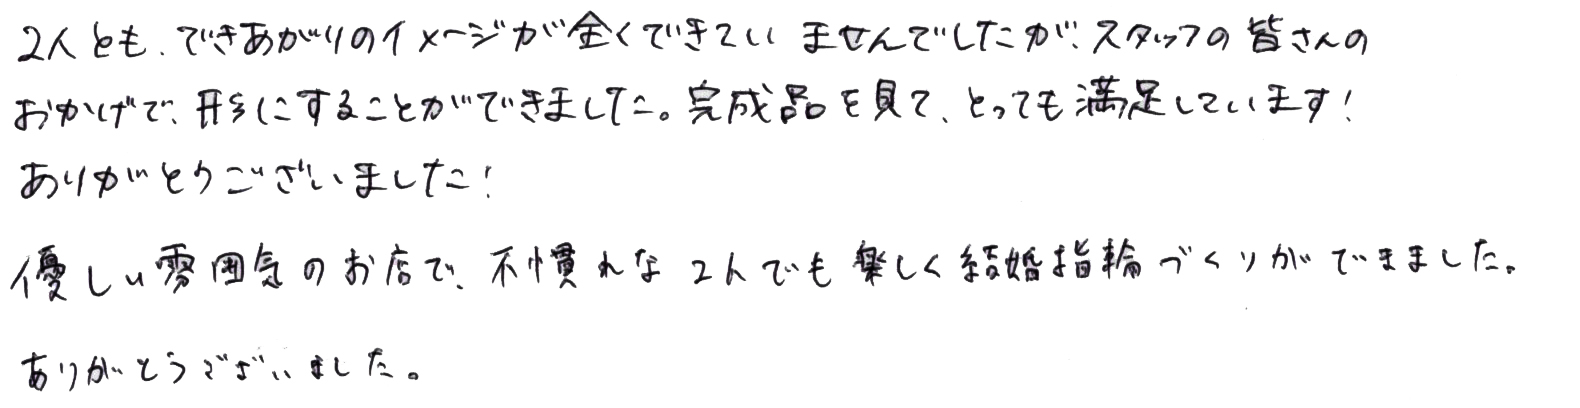 2人とも、できあがりのイメージが全くできていませんでしたが、スタッフの皆さんの
おかげで、形にすることができました。完成品を見て、とっても満足しています！
ありがとうございました！
優しい雰囲気のお店で、不慣れな2人でも楽しく結婚指輪づくりができました。
ありがとうございました。